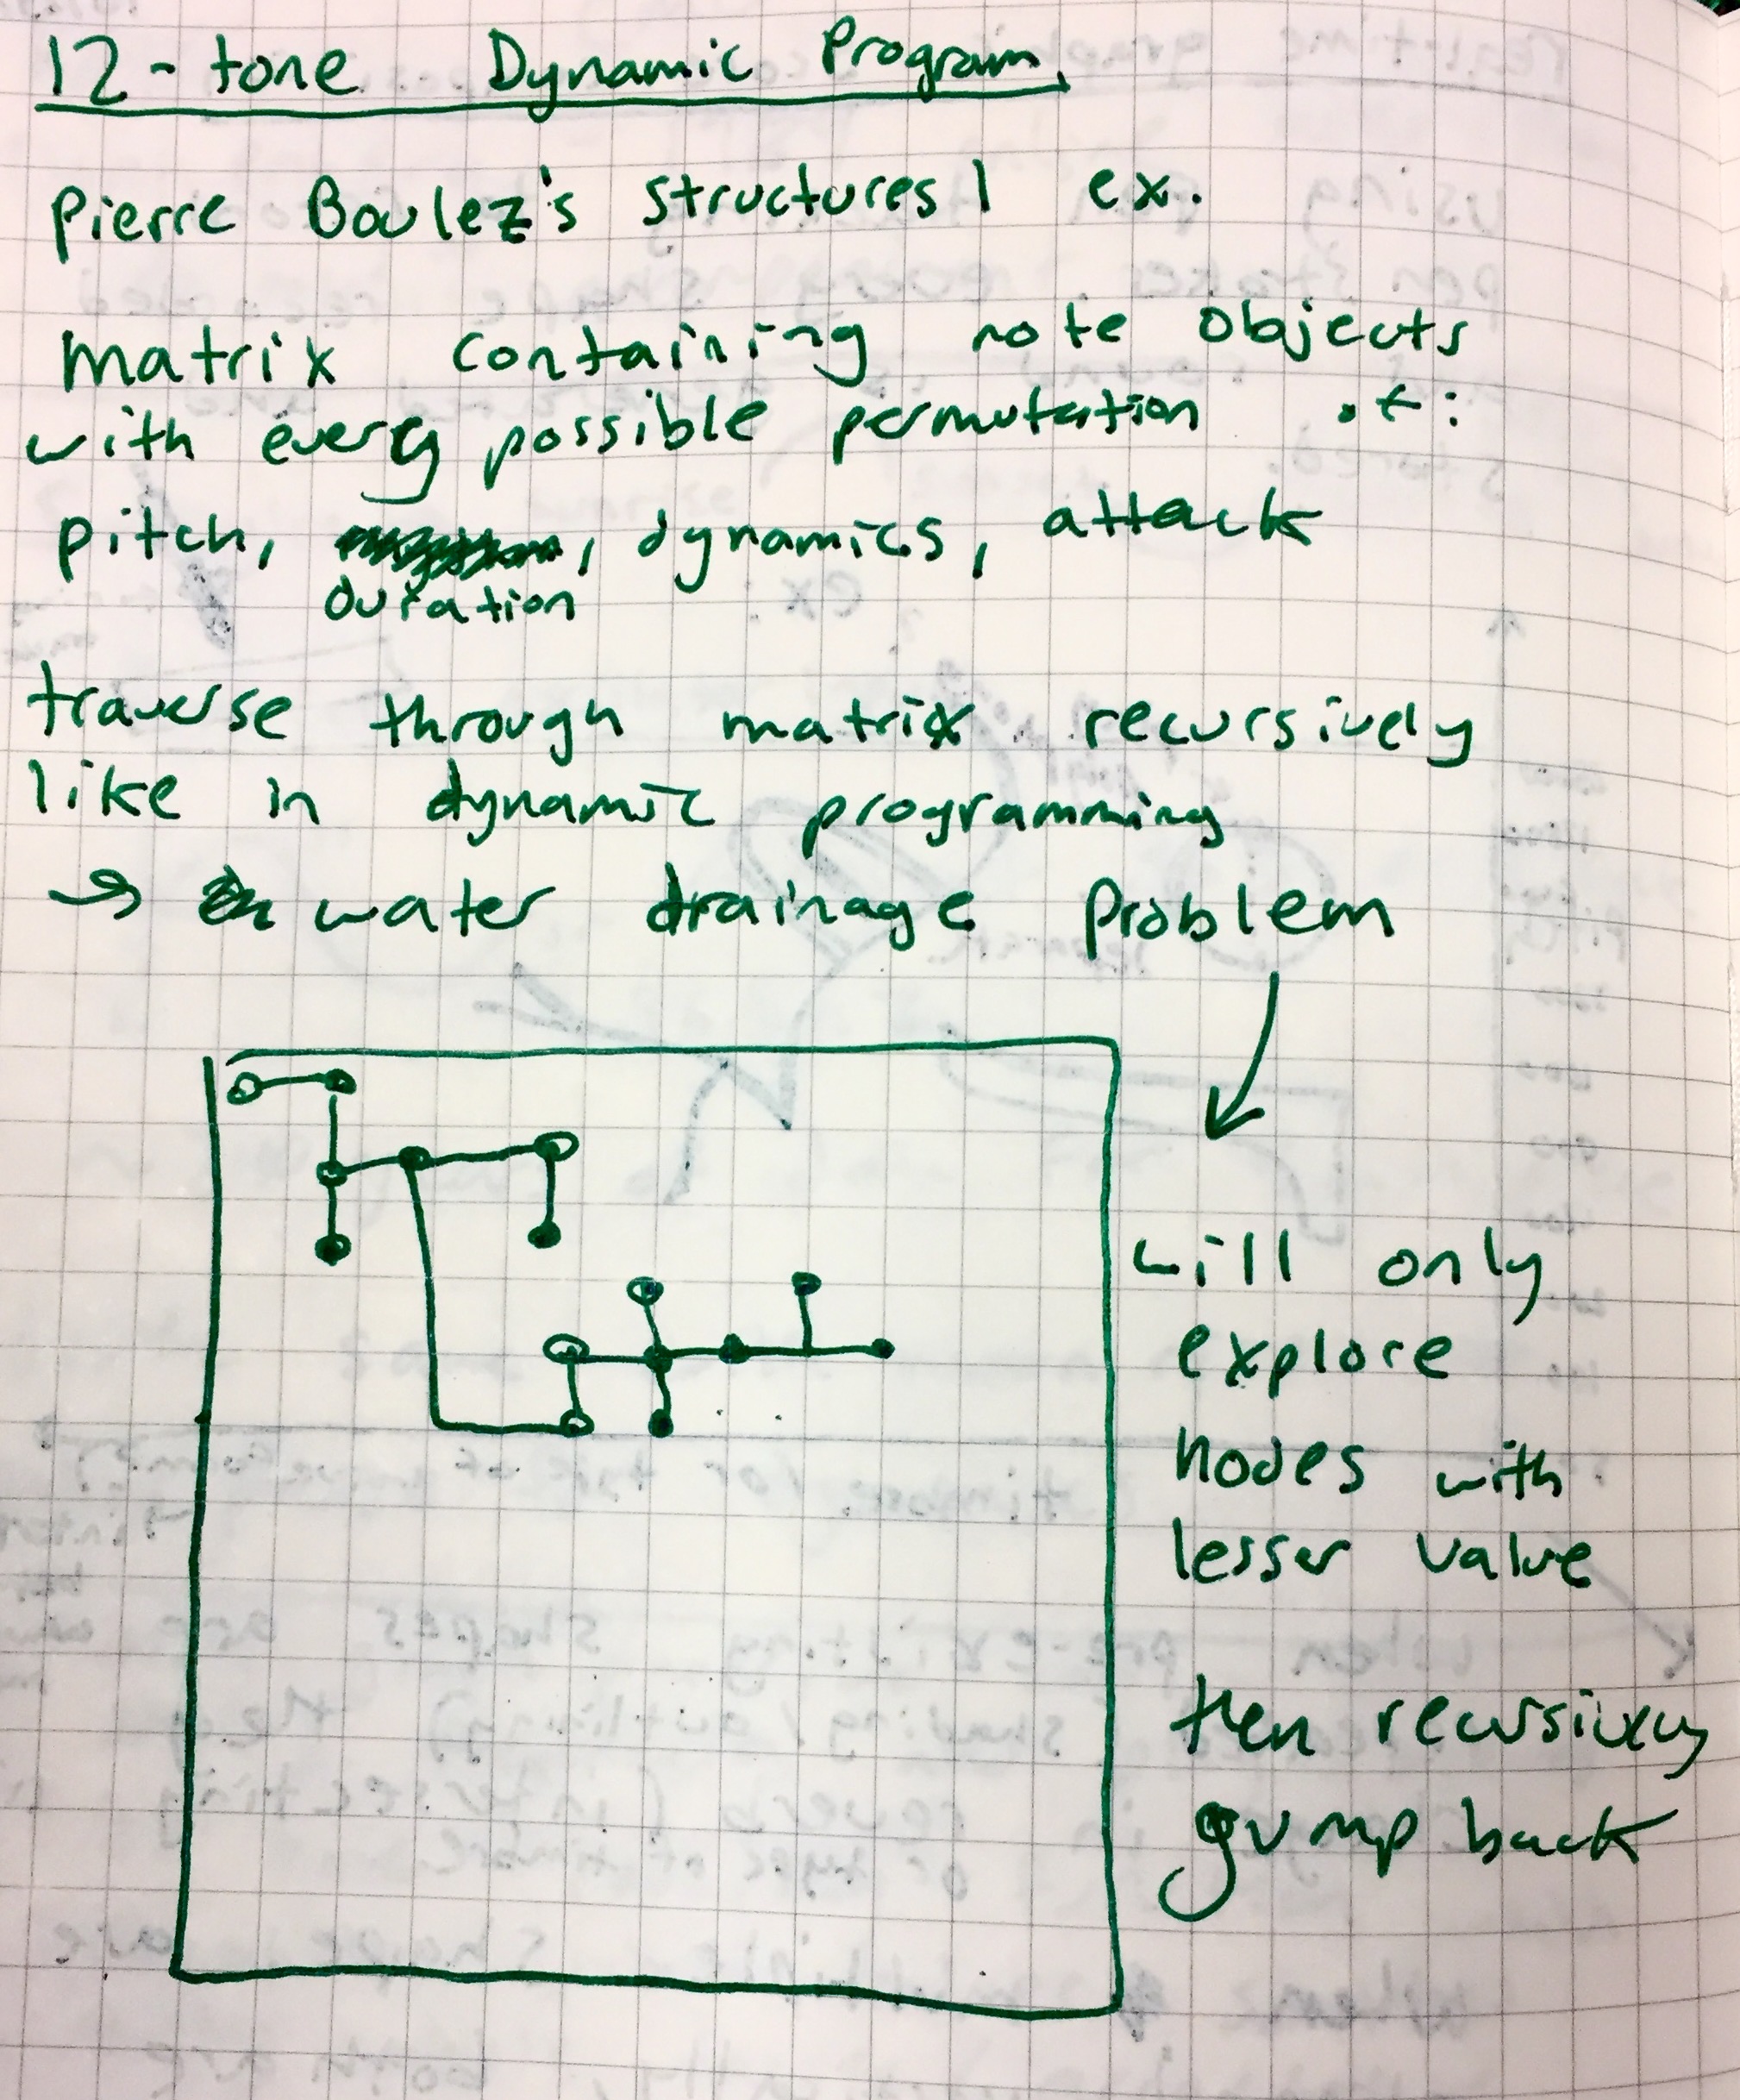 12-tone Dynamic Program.
Pierre Boulez's structures 1 ex.
matrix containing note objects
with every possible permutation of:
pitch, duration, dynamics, attack
traverse through matrix recursively
like in dynamic programming
→ water drainage problem
will only
explore
nodes with
lesser value
then recursivey
gump back